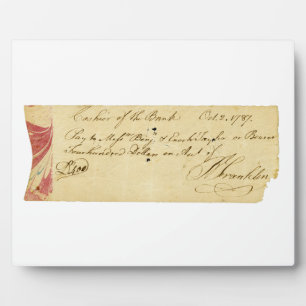 Cashier of the Bank Oct. 2. 1787.
Pay to Messrs. Benj. & Enoch Taylor or Bearer
Four hundred Dollars on Acct of
400 B Franklin